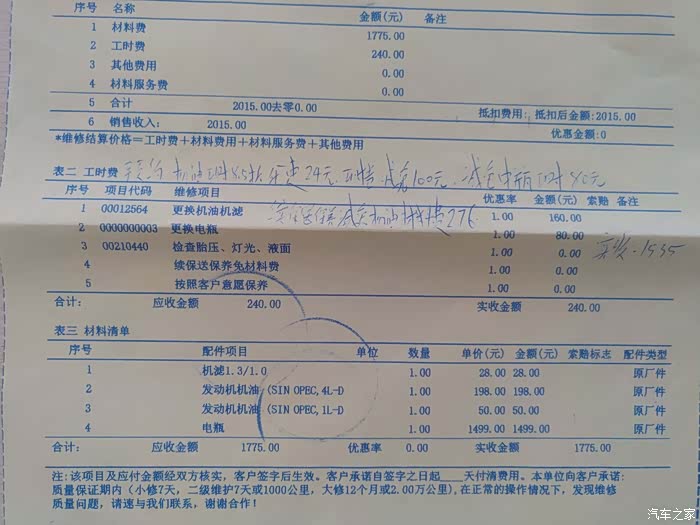 序号 名称 金额(元) 备注
1 材料费 1775.00
2 工时费 240.00
3 其他费用 0.00
4 材料服务费 0.00
5 合计 2015.00去零0.00 抵扣费用: 抵扣后金额:2015.00
6 销售收入: 2015.00 优惠金额:0
*维修结算价格=工时费+材料费用+材料服务费+其他费用
表二 工时费 机油工时8.5折 24元 减免100元、减免电瓶工时80元
序号 项目代码 维修项目 优惠率 金额(元) 索赔 备注
1 00012564 更换机油机滤 减免机油机滤276 1.00 160.00
2 0000000003 更换电瓶 1.00 80.00
3 00210440 检查胎压、灯光、液面 1.00 0.00 实收:1535
4 续保送保养免材料费 1.00 0.00
5 按照客户意愿保养 1.00 0.00
合计: 应收金额 240.00 实收金额 240.00
表三 材料清单
序号 配件项目 单位 数量 单价(元) 金额(元) 索赔标志 配件类型
1 机滤1.3/1.0 1.00 28.00 28.00 原厂件
2 发动机机油 (SIN OPEC,4L-D 1.00 198.00 198.00 原厂件
3 发动机机油 (SIN OPEC,1L-D 1.00 50.00 50.00 原厂件
4 电瓶 1.00 1499.00 1499.00 原厂件
合计: 应收金额 1775.00 优惠率 0.00 实收金额 1775.00
注:该项目及应付金额经双方核实，客户签字后生效。客户承诺自签字之日起____天付清费用。本单位向客户承诺:
质量保证期内（小修7天，二级维护7天或1000公里，大修12个月或2.00万公里),在正常的操作情况下，发现维修
质量问题，请速与我们联系，谢谢合作！
汽车之家